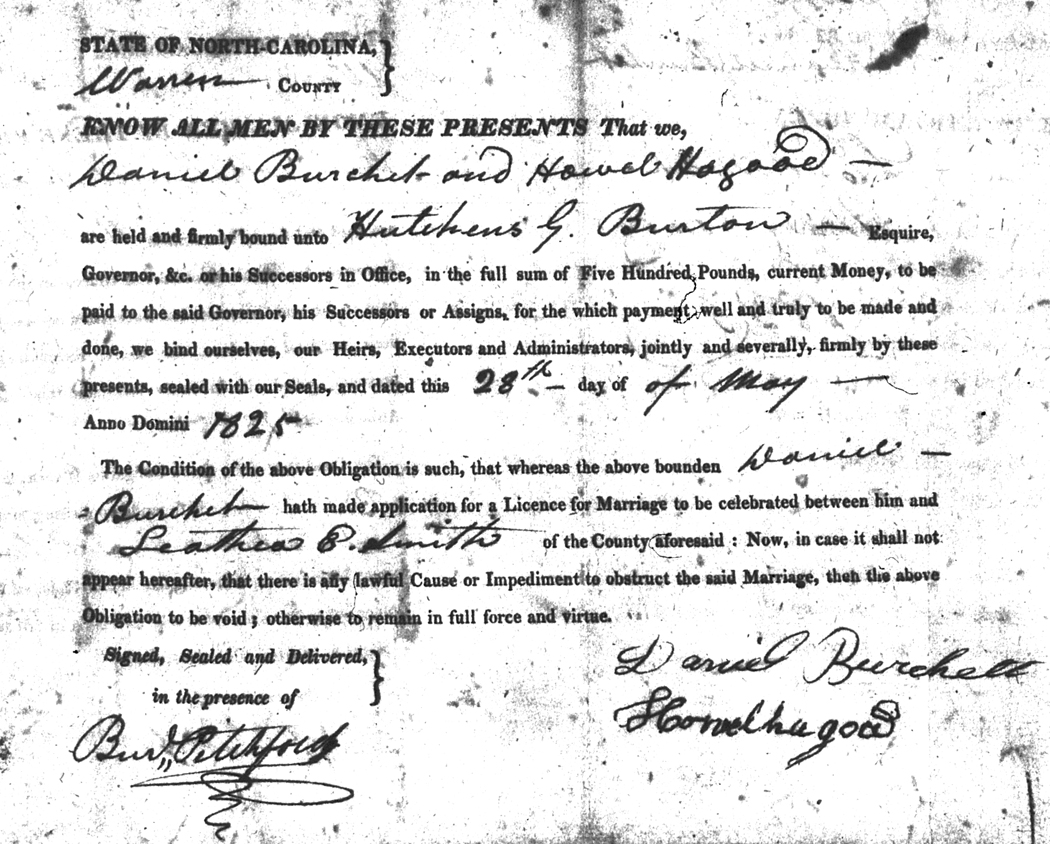 STATE OF NORTH-CAROLINA,
Warren County
KNOW ALL MEN BY THESE PRESENTS That we,
Daniel Burchet and Howel Hagood —
are held and firmly bound unto Hutchens G. Burton — Esquire,
Governor, &c. or his Successors in Office, in the full sum of Five Hundred Pounds, current Money, to be
paid to the said Governor, his Successors or Assigns, for the which payment, well and truly to be made and
done, we bind ourselves, our Heirs, Executors and Administrators, jointly and severally, firmly by these
presents, sealed with our Seals, and dated this 28th — day of of May —
Anno Domini 1825
The Condition of the above Obligation is such, that whereas the above bounden Daniel —
Burchet hath made application for a Licence for Marriage to be celebrated between him and
Leathea E. Smith of the County aforesaid : Now, in case it shall not
appear hereafter, that there is any lawful Cause or Impediment to obstruct the said Marriage, then the above
Obligation to be void ; otherwise to remain in full force and virtue.
Signed, Sealed and Delivered,
in the presence of
Daniel Burchett
Howel hagood
Burl,, Pitchford